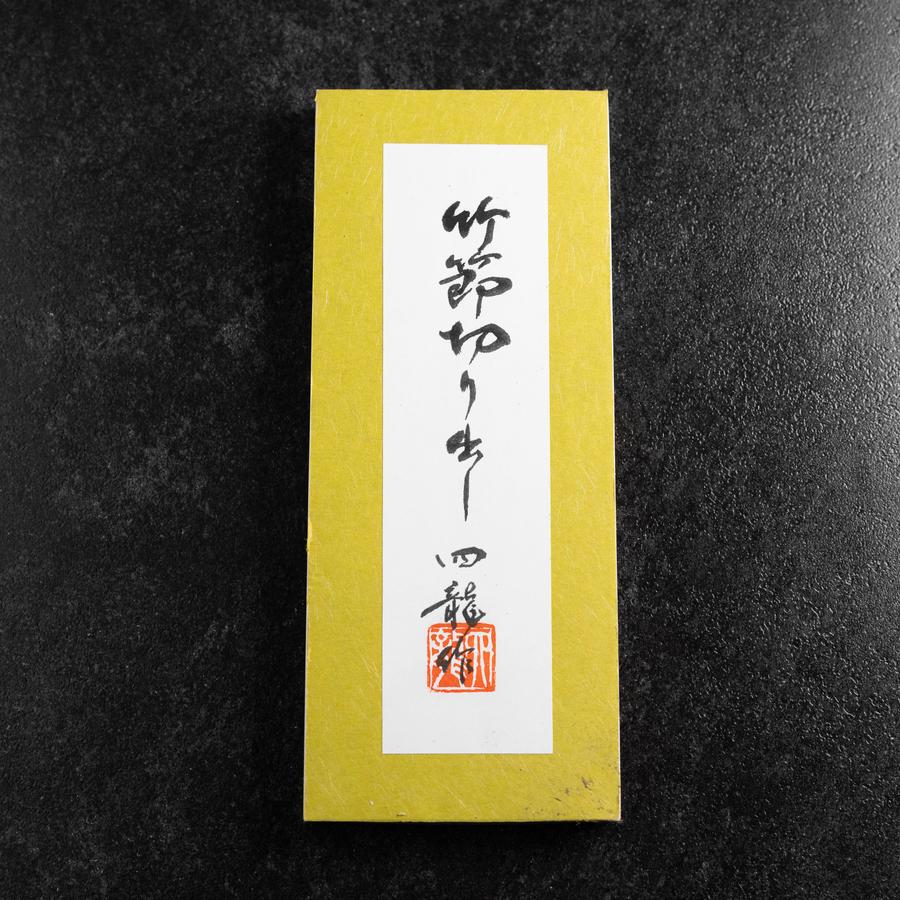 竹節切り出し
四龍作